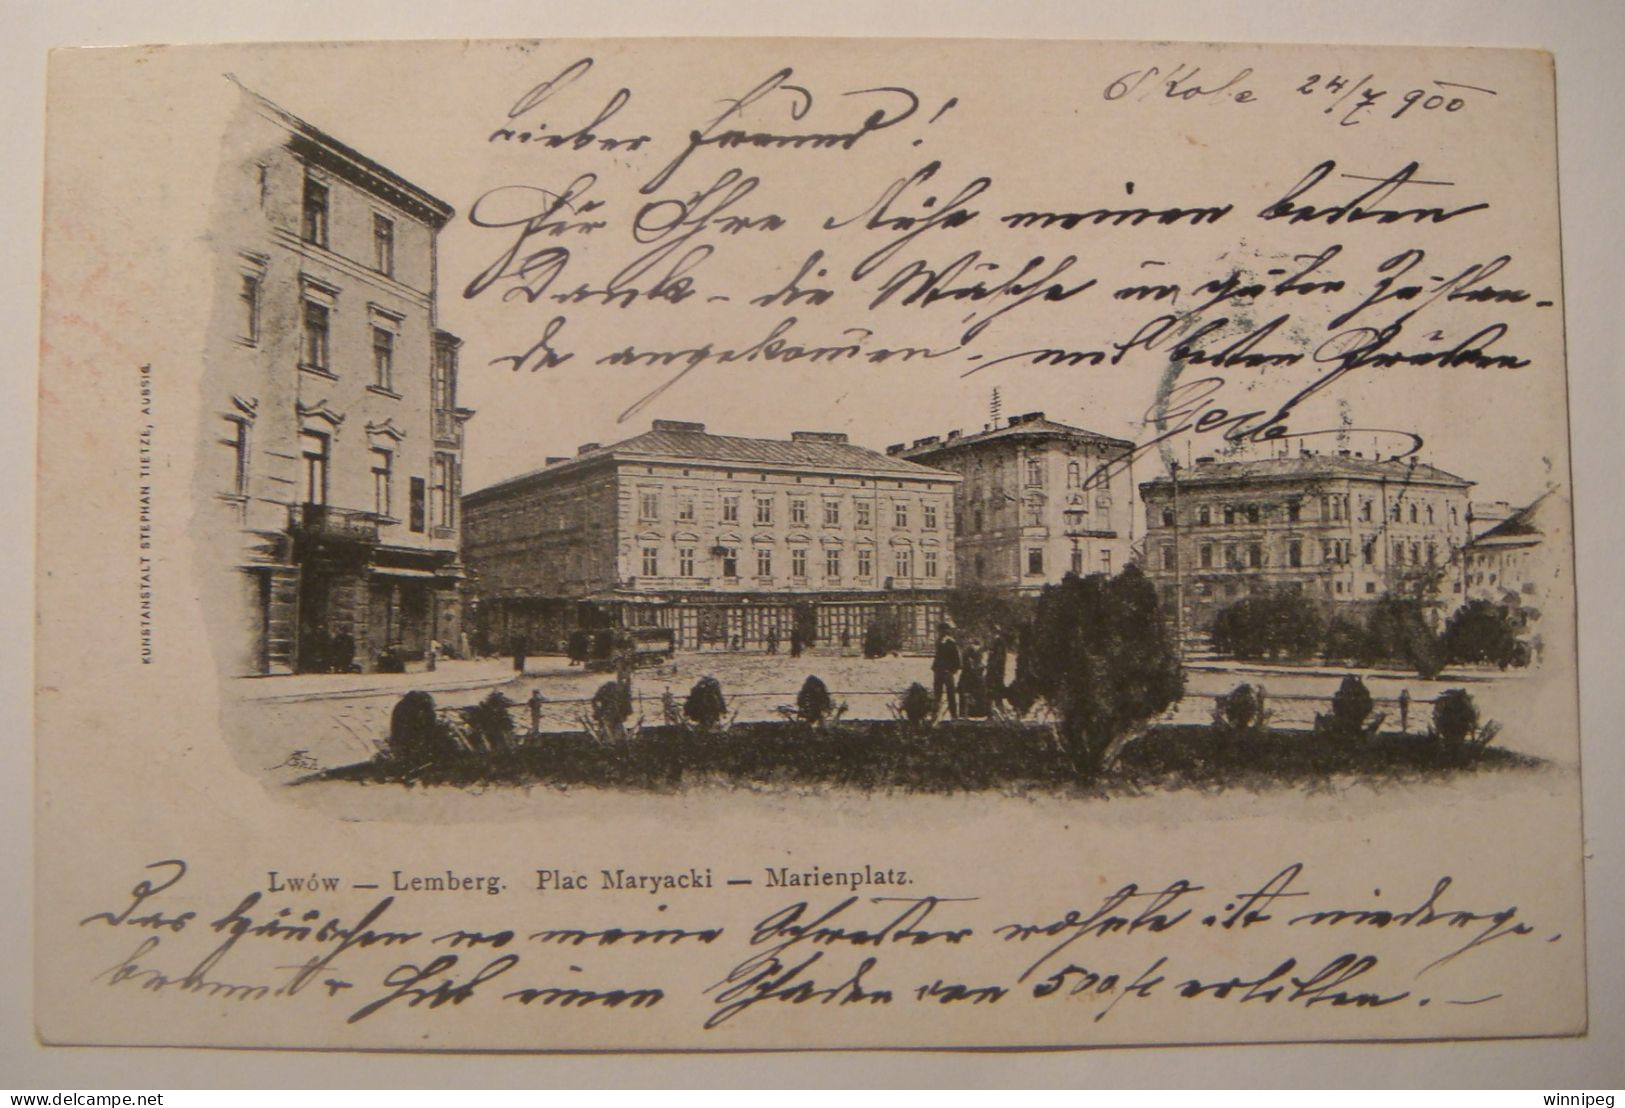 Skole 24/7 900
Lieber Freund!
Für Ihre Mühe meinen besten
Dank - die Wäsche in guten Zustan-
de angekommen. - mit besten Grüßen
KUNSTANSTALT STEPHAN TIETZE, AUSSIG.
Lwów — Lemberg. Plac Maryacki — Marienplatz.
Das Häuschen wo meine Schwester wohnte ist niederge.
brannt hat einen Schaden von 500 fl erlitten. -
delcampe.net
winnipeg